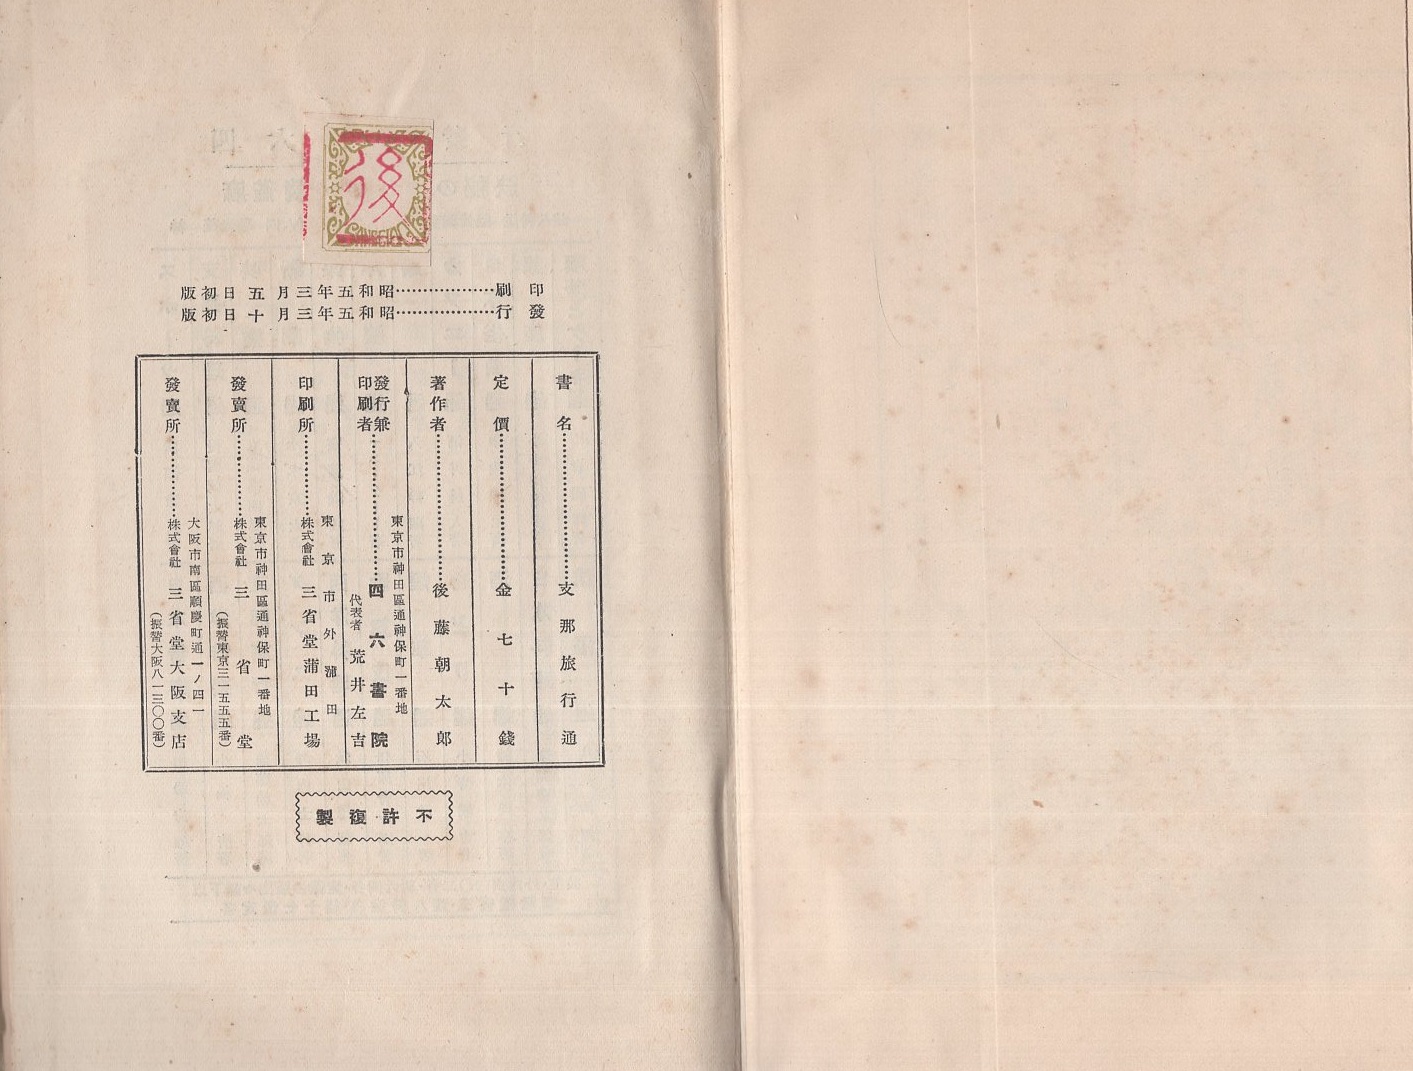 後
SANSEIDO
印刷………………昭和五年三月五日初版
發行………………昭和五年三月十日初版
書名………………支那旅行通
定價………………金七十錢
著作者………………後藤朝太郎
東京市神田區通神保町一番地
發行兼印刷者………………四六書院
代表者 荒井左吉
東京市外蒲田
印刷所………………株式會社 三省堂蒲田工場
東京市神田區通神保町一番地
發賣所………………株式會社 三省堂
(振替東京三一五五五番)
大阪市南區順慶町通一ノ四一
發賣所………………株式會社 三省堂大阪支店
(振替大阪八一三〇〇番)
不許復製